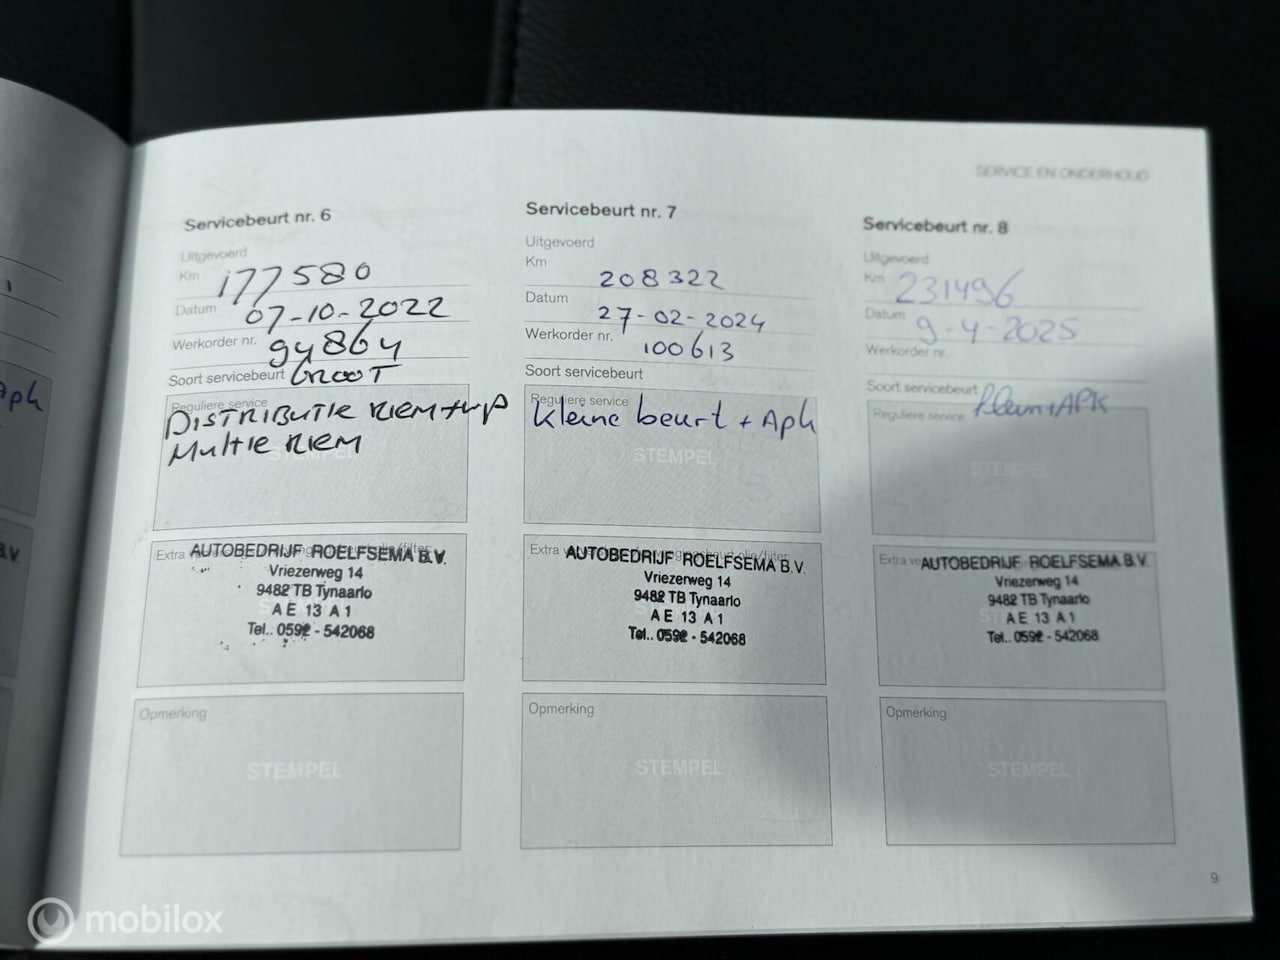 SERVICE EN ONDERHOUD
Servicebeurt nr. 6
Uitgevoerd
Km 177580
Datum 07-10-2022
Werkorder nr. 94864
Soort servicebeurt GROOT
Reguliere service
DISTRIBUTIE RIEM + WP
MULTIE RIEM
STEMPEL
Extra
AUTOBEDRIJF ROELFSEMA B.V.
Vriezerweg 14
9482 TB Tynaarlo
AE 13 A1
Tel.. 0592 - 542068
Opmerking
STEMPEL
Servicebeurt nr. 7
Uitgevoerd
Km 208322
Datum 27-02-2024
Werkorder nr. 100613
Soort servicebeurt
Reguliere service
Kleine beurt + Apk
STEMPEL
Extra
AUTOBEDRIJF ROELFSEMA B.V.
Vriezerweg 14
9482 TB Tynaarlo
AE 13 A1
Tel.. 0592 - 542068
Opmerking
STEMPEL
Servicebeurt nr. 8
Uitgevoerd
Km 231496
Datum 9-4-2025
Werkorder nr.
Soort servicebeurt klein+APK
Reguliere service
STEMPEL
Extra
AUTOBEDRIJF ROELFSEMA B.V.
Vriezerweg 14
9482 TB Tynaarlo
AE 13 A1
Tel.. 0592 - 542068
Opmerking
STEMPEL
9
Apk
B.V.
mobilox